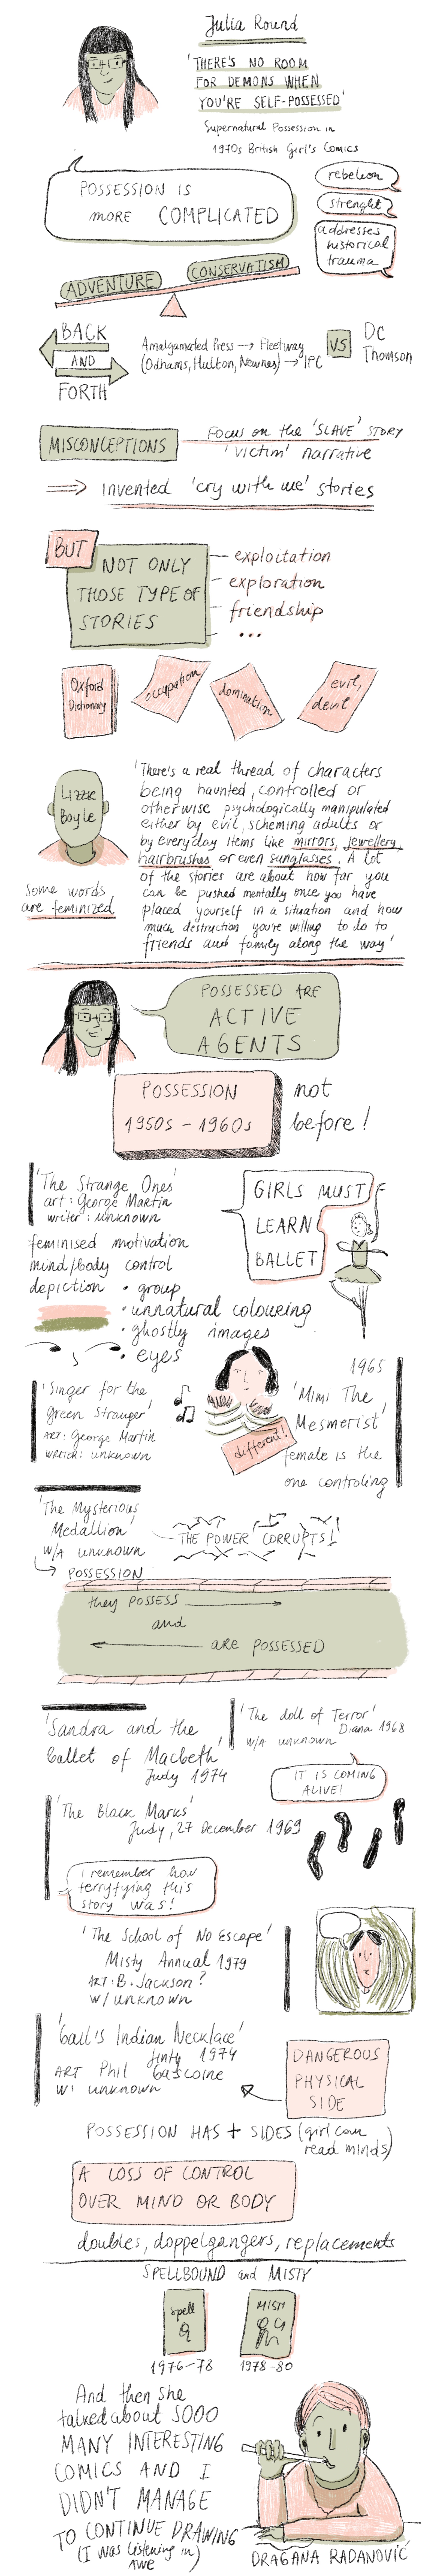 Julia Round
'THERE'S NO ROOM
FOR DEMONS WHEN
YOU'RE SELF-POSSESSED'
Supernatural Possession in
1970s British Girl's Comics
POSSESSION IS
MORE COMPLICATED
rebelion
strenght
addresses
historical
trauma
ADVENTURE
CONSERVATISM
BACK
AND
FORTH
Amalgamated Press → Fleetway
(Odhams, Hulton, Newnes) → IPC
VS
DC
Thomson
MISCONCEPTIONS
FOCUS ON the 'SLAVE' STORY
'VICTIM' narrative
⇒ Invented 'cry with me' stories
BUT
NOT ONLY
THOSE TYPE OF
STORIES
exploitation
exploration
friendship
...
Oxford
Dichionary
occupation
domination
evil,
devil
Lizzie
Boyle
some words
are feminized
'There's a real thread of characters
being haunted, controlled or
otherwise psychologically manipulated
either by evil, scheming adults or
by everyday items like mirrors, jewellery,
hairbrushes or even sunglasses. A lot
of the stories are about how far you
can be pushed mentally once you have
placed yourself in a situation and how
much destruction you're willing to do to
friends and family along the way'
POSSESSED ARE
ACTIVE
AGENTS
POSSESSION
1950s - 1960s
not
before!
'The Strange Ones'
art: George Martin
writer: unknown
GIRLS MUST
LEARN
BALLET
feminised motivation
mind/body control
depiction • group
• unnatural colouring
• ghostly images
• eyes
'Singer for the
Green Stranger'
ART: George Martin
WRITER: unknown
different!
1965
'Mimi The
Mesmerist'
female is the
one controling
'The Mysterious
Medallion'
W/A unknown
THE POWER CORRUPTS!
→ POSSESSION
they POSSESS
and
are POSSESSED
'Sandra and the
ballet of Macbeth'
Judy 1974
'The doll of Terror'
Diana 1968
W/A unknown
IT IS COMING
ALIVE!
'The Black Marks'
Judy, 27 December 1969
I remember how
terryfying this
story was!
'The School of No Escape'
Misty Annual 1979
ART: B. Jackson?
W/ unknown
'Gail's Indian Necklace'
Jinty 1974
ART Phil Gascoine
W: unknown
DANGEROUS
PHYSICAL
SIDE
POSSESSION HAS + SIDES (girl can
read minds)
A LOSS OF CONTROL
OVER MIND OR BODY
doubles, doppelgangers, replacements
SPELLBOUND and MISTY
Spell
MISTY
1976-78
1978-80
And then she
talked about SOOO
MANY INTERESTING
COMICS AND I
DIDN'T MANAGE
TO CONTINUE DRAWING
(I was listening in)
AWE
DRAGANA RADANOVIĆ